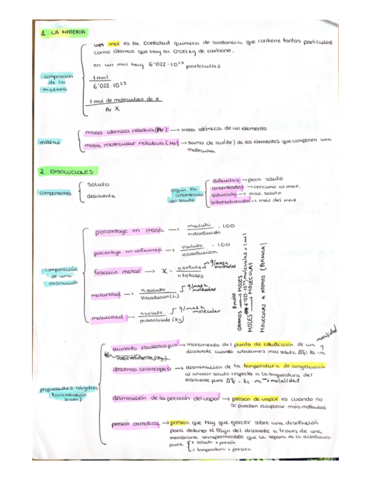 1. LA MATERIA
un mol es la cantidad química de sustancia que contiene tantas partículas
como átomos que hay en 0'012 kg de carbono.
en un mol hay 6'022·10²³ partículas
composición
de la
materia
1 mol
6'022·10²³
1 mol de moléculas de X
Ar X
masas
masa atómica relativa (Ar) → masa atómica de un elemento
masa molecular relativa (Mr) → suma de las (Ar) de los elementos que componen una
molécula
2. DISOLUCIONES
componentes
soluto
disolvente
según la
concentración
del soluto
diluidas → poco soluto
concentradas → cercano al max.
saturadas → max soluto
sobresaturadas → más del max
composición
de una
disolución
porcentaje en masa → msoluto/mdisolución · 100
porcentaje en volumen → Vsoluto/Vdisolución · 100
fracción molar → X = n soluto/n totales
molaridad → n soluto/Vdisolución (L)
molalidad → n soluto/mdisolvente (kg)
PASAR
GRAMOS → MOLES
MOLES → MOLÉCULAS
MOLÉCULAS A ÁTOMOS (FÓRMULA)
propiedades coligativas
aumento ebulloscópico → incremento del punto de ebullición de un
disolvente cuando añadimos más soluto
molalidad
descenso crioscópico → disminución de la temperatura de congelación
al añadir soluto respecto a la temperatura del
disolvente puro → molalidad
disminución de la presión del vapor → presión de vapor es cuando no
se pueden evaporar más moléculas
presión osmótica → presión que hay que ejercer sobre una disolución
para detener el flujo del disolvente a través de una
membrana semipermeable que la separa de la disolución
pura
↑ soluto → ↑ presión
↑ temperatura ↑ presión